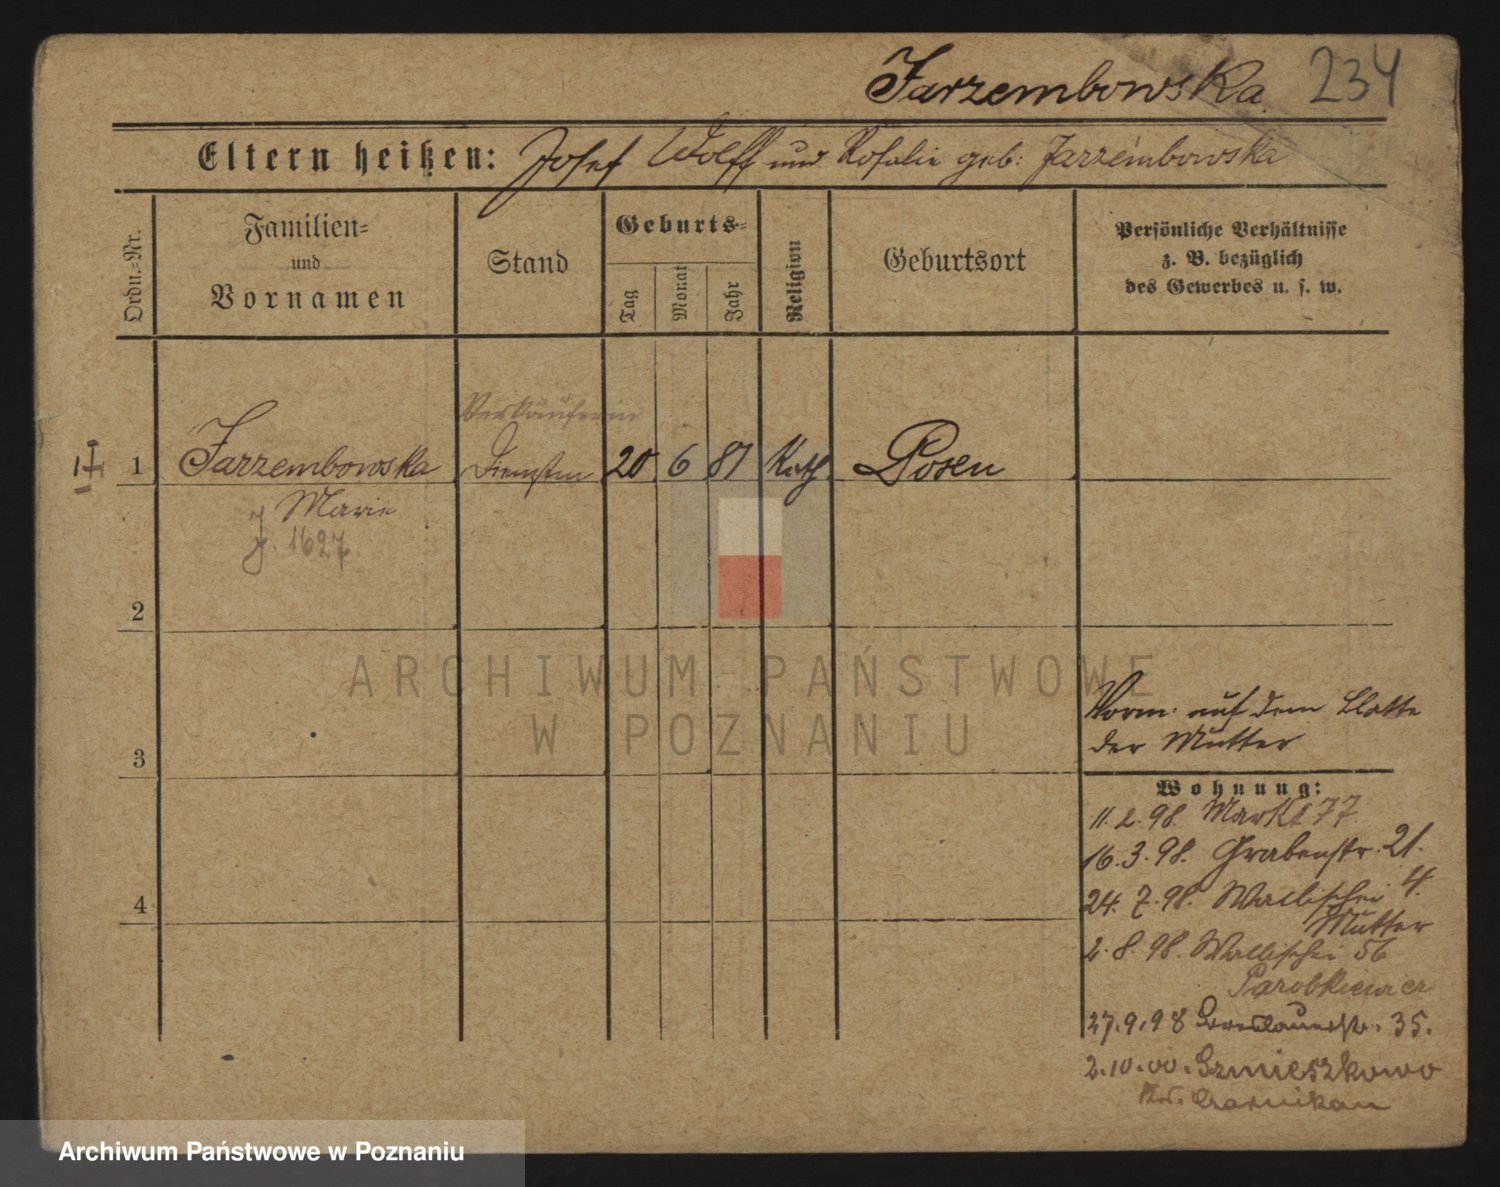 Jarzembowska 234
Eltern heißen: Josef Wolff und Rosalie geb: Jarzembowska
Ordn.-Nr.
Familien-
und
Vornamen
Stand
Geburts-
Tag
Monat
Jahr
Religion
Geburtsort
Persönliche Verhältnisse
z. B. bezüglich
des Gewerbes u. s. w.
Verkäuferin
1 Jarzembowska Dienstm 20 6 81 Kath. Posen
Marie
J. 1627
2
ARCHIWUM PAŃSTWOWE
W POZNANIU
Vorm. auf dem Blatte
der Mutter
3
Wohnung:
11.2.98. Markt 77
16.3.98. Grabenstr. 21.
4
24.7.98. Wallischei 4.
Mutter
2.8.98. Wallischei 56
Parobkiewicz
27.9.98 Breslauerstr. 35.
2.10.00. Gzmieszkowo
Krs. Czarnikau
Archiwum Państwowe w Poznaniu